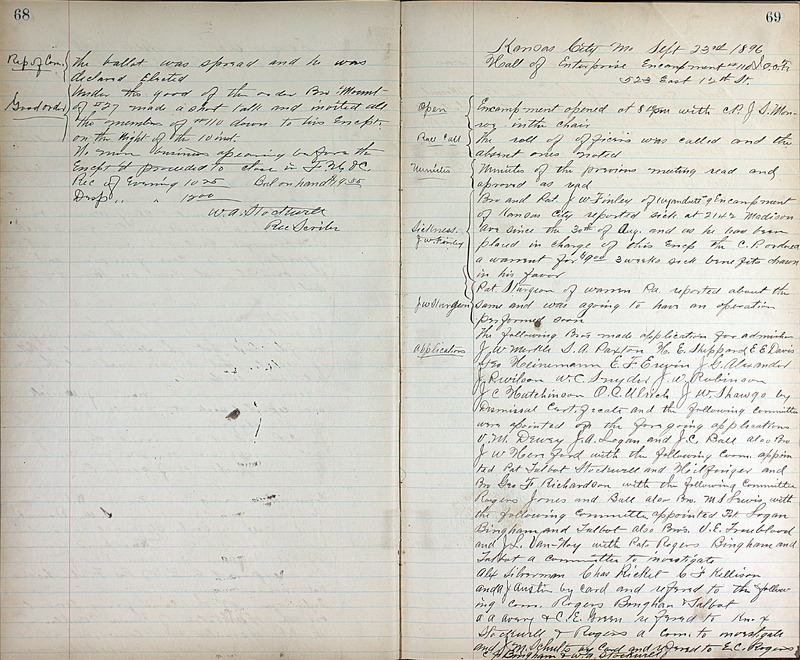 68
Rep of Com. The ballot was spread and he was
declared Elected
Good order Under the good of the order Bro Mount
of #27 made a short talk and invited all
the members of no 10 down to his Encpt.
on the Night of the 10 inst.
No more business appearing before the
Encpt it proceeded to close in F. H. & C.
Rec of Evening 10 25 Bal on hand
Disp " " 1200
W. A. Stockwell
Rec Scribe
69
Kansas City Mo Sept 23rd 1896
Hall of Enterprise Encampment I.O.O.F.
523 East 12th St.
Open Encampment opened at 8 pm with C.P. J. S. Mon-
roe in the chair
Roll Call The roll of officers was called and the
absent ones noted
Minutes Minutes of the previous meeting read and
aproved as read
Bro and Pat J. W. Finley of Wyandotte 9 Encampment
of Kansas City reported sick at 2142 Madison
Sickness Ave since the 30th of Aug. and as he has been
J W Finley placed in charge of this Encp the C.P. ordered
a warrant for $9.00 3 weeks sick benefits drawn
in his favor
Pat Sturgeon of Warren Pa. reported about the
J W Sturgeon same and was agoing to have an operation
performed soon
The following Bros made application for admission
Applications J W Merkle S. A. Paxton H. E. Sheppard E E Davis
Geo Heinemann E. F. Erwin J. C. Alexander
J R wilson W. C. Snyder J. W. Robinson
J C Hutchinson O. C. Ulrich J W. Shawgo by
Dismissal Certificate and the following committee
were apointed on the foregoing applications
V. M. Dewey J. A. Logan and J. C. Ball also Bro
J W Hereford with the following Com. appoin
ted Pat Talbot Stockwell and and
Bro Geo F Richardson with the following Committee
Rogers Jones and Ball also Bro. M S Lewis with
the following Committee appointed Pat Logan
Bingham and Talbot also Bros. V. E. Trueblood
and J. L. Van-Noy with Pats Rogers Bingham and
Talbot a committee to investigate
Alx Silverman Chas Rickel C F Kellison
and A J Austin by card and refered to the follow
ing Com. Rogers Bingham & Talbot
A A Avery & C. E. Green refered to
Stockwell & Rogers a Com. to investigate
and J. M. Schultz by Card and refered to E. C. Rogers
Bingham & W. A. Stockwell